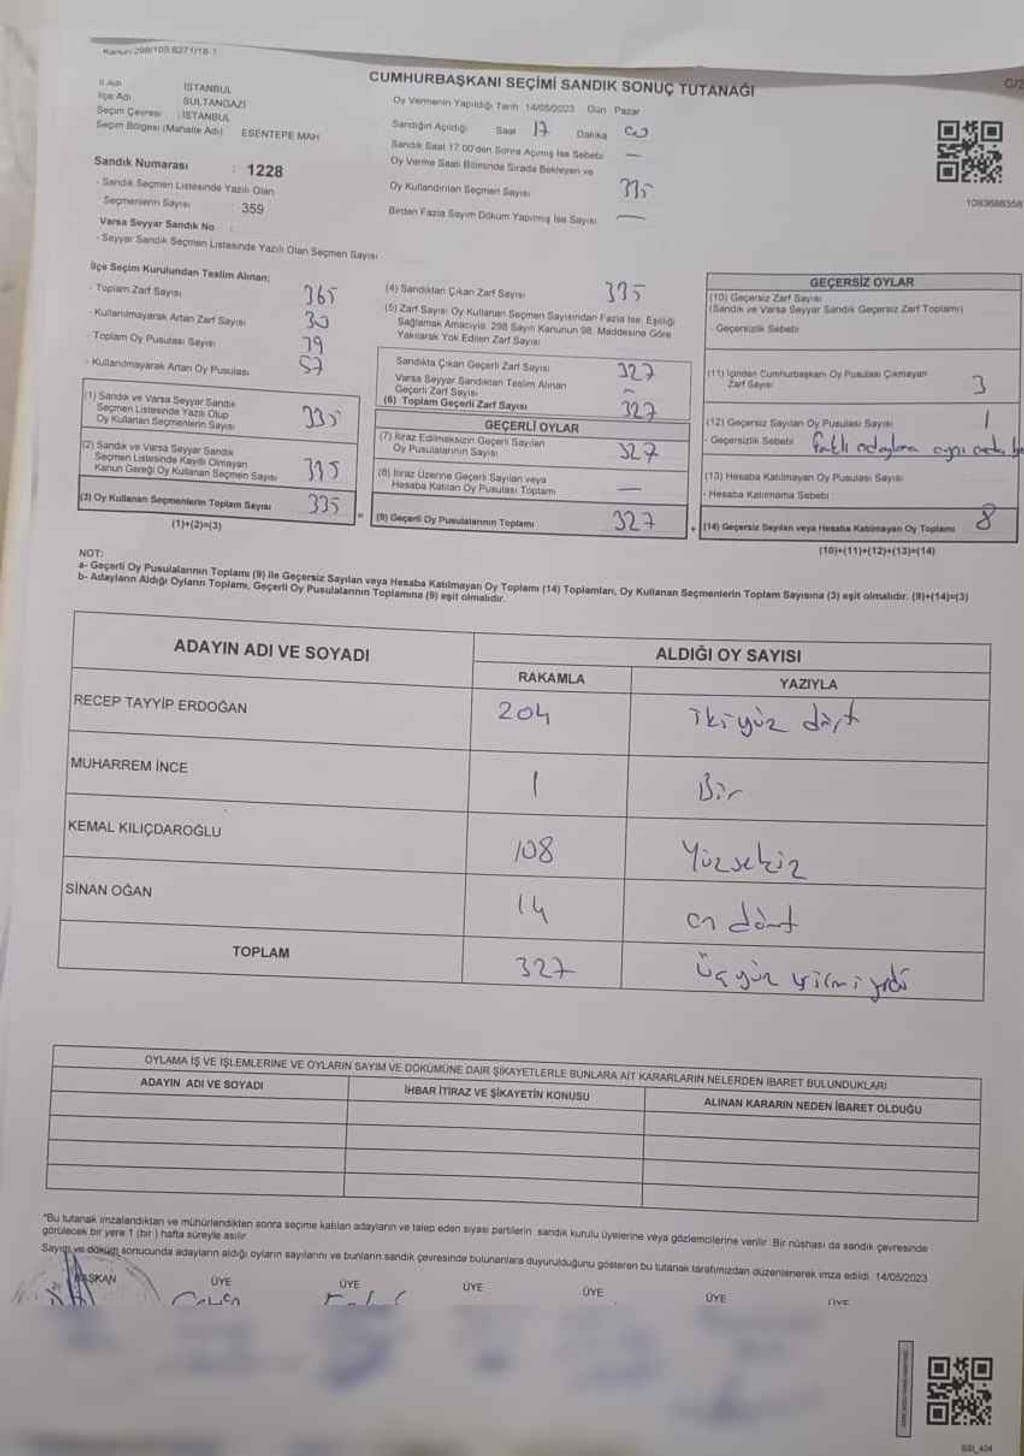 Kanun 298/105.6271/18-1
CUMHURBAŞKANI SEÇİMİ SANDIK SONUÇ TUTANAĞI
C/2
İl Adı : İSTANBUL
İlçe Adı SULTANGAZİ
Seçim Çevresi : İSTANBUL
Seçim Bölgesi (Mahalle Adı) ESENTEPE MAH
Sandık Numarası : 1228
- Sandık Seçmen Listesinde Yazılı Olan
Seçmenlerin Sayısı : 359
Varsa Seyyar Sandık No :
- Seyyar Sandık Seçmen Listesinde Yazılı Olan Seçmen Sayısı
Oy Vermenin Yapıldığı Tarih 14/05/2023 Gün Pazar
Sandığın Açıldığı Saat 17 Dakika 00
Sandık Saat 17.00'den Sonra Açılmış İse Sebebi —
Oy Verme Saati Bitiminde Sırada Bekleyen ve
Oy Kullandırılan Seçmen Sayısı 335
Birden Fazla Sayım Döküm Yapılmış İse Sayısı —
1093688358
İlçe Seçim Kurulundan Teslim Alınan;
- Toplam Zarf Sayısı 365
- Kullanılmayarak Artan Zarf Sayısı 30
- Toplam Oy Pusulası Sayısı 79
- Kullanılmayarak Artan Oy Pusulası 57
(1) Sandık ve Varsa Seyyar Sandık
Seçmen Listesinde Yazılı Olup
Oy Kullanan Seçmenlerin Sayısı 335
(2) Sandık ve Varsa Seyyar Sandık
Seçmen Listesinde Kayıtlı Olmayan
Kanun Gereği Oy Kullanan Seçmen Sayısı
(3) Oy Kullanan Seçmenlerin Toplam Sayısı 335
(1)+(2)=(3)
(4) Sandıktan Çıkan Zarf Sayısı 335
(5) Zarf Sayısı Oy Kullanan Seçmen Sayısından Fazla İse; Eşitliği
Sağlamak Amacıyla, 298 Sayılı Kanunun 98. Maddesine Göre
Yakılarak Yok Edilen Zarf Sayısı
Sandıkta Çıkan Geçerli Zarf Sayısı 327
Varsa Seyyar Sandıktan Teslim Alınan
Geçerli Zarf Sayısı —
(6) Toplam Geçerli Zarf Sayısı 327
GEÇERLİ OYLAR
(7) İtiraz Edilmeksizin Geçerli Sayılan
Oy Pusulalarının Sayısı 327
(8) İtiraz Üzerine Geçerli Sayılan veya
Hesaba Katılan Oy Pusulası Toplamı —
= (9) Geçerli Oy Pusulalarının Toplamı 327
GEÇERSİZ OYLAR
(10) Geçersiz Zarf Sayısı
(Sandık ve Varsa Seyyar Sandık Geçersiz Zarf Toplamı)
- Geçersizlik Sebebi
(11) İçinden Cumhurbaşkanı Oy Pusulası Çıkmayan
Zarf Sayısı 3
(12) Geçersiz Sayılan Oy Pusulası Sayısı 1
- Geçersizlik Sebebi
(13) Hesaba Katılmayan Oy Pusulası Sayısı
- Hesaba Katılmama Sebebi
+ (14) Geçersiz Sayılan veya Hesaba Katılmayan Oy Toplamı 8
(10)+(11)+(12)+(13)=(14)
NOT:
a- Geçerli Oy Pusulalarının Toplamı (9) ile Geçersiz Sayılan veya Hesaba Katılmayan Oy Toplamı (14) Toplamları, Oy Kullanan Seçmenlerin Toplam Sayısına (3) eşit olmalıdır. (9)+(14)=(3)
b- Adayların Aldığı Oyların Toplamı, Geçerli Oy Pusulalarının Toplamına (9) eşit olmalıdır.
ADAYIN ADI VE SOYADI ALDIĞI OY SAYISI
RAKAMLA YAZIYLA
RECEP TAYYİP ERDOĞAN 204 ikiyüz dört
MUHARREM İNCE 1 Bir
KEMAL KILIÇDAROĞLU 108 Yüzsekiz
SİNAN OĞAN 14 on dört
TOPLAM 327 üçyüz yirmi yedi
OYLAMA İŞ VE İŞLEMLERİNE VE OYLARIN SAYIM VE DÖKÜMÜNE DAİR ŞİKAYETLERLE BUNLARA AİT KARARLARIN NELERDEN İBARET BULUNDUKLARI
ADAYIN ADI VE SOYADI İHBAR İTİRAZ VE ŞİKAYETİN KONUSU ALINAN KARARIN NEDEN İBARET OLDUĞU
*Bu tutanak imzalandıktan ve mühürlendikten sonra seçime katılan adayların ve talep eden siyasi partilerin sandık kurulu üyelerine veya gözlemcilerine verilir. Bir nüshası da sandık çevresinde
görülecek bir yere 1 (bir) hafta süreyle asılır
Sayım ve döküm sonucunda adayların aldığı oyların sayılarını ve bunların sandık çevresinde bulunanlara duyurulduğunu gösteren bu tutanak tarafımızdan düzenlenerek imza edildi. 14/05/2023
BAŞKAN ÜYE ÜYE ÜYE ÜYE ÜYE ÜYE